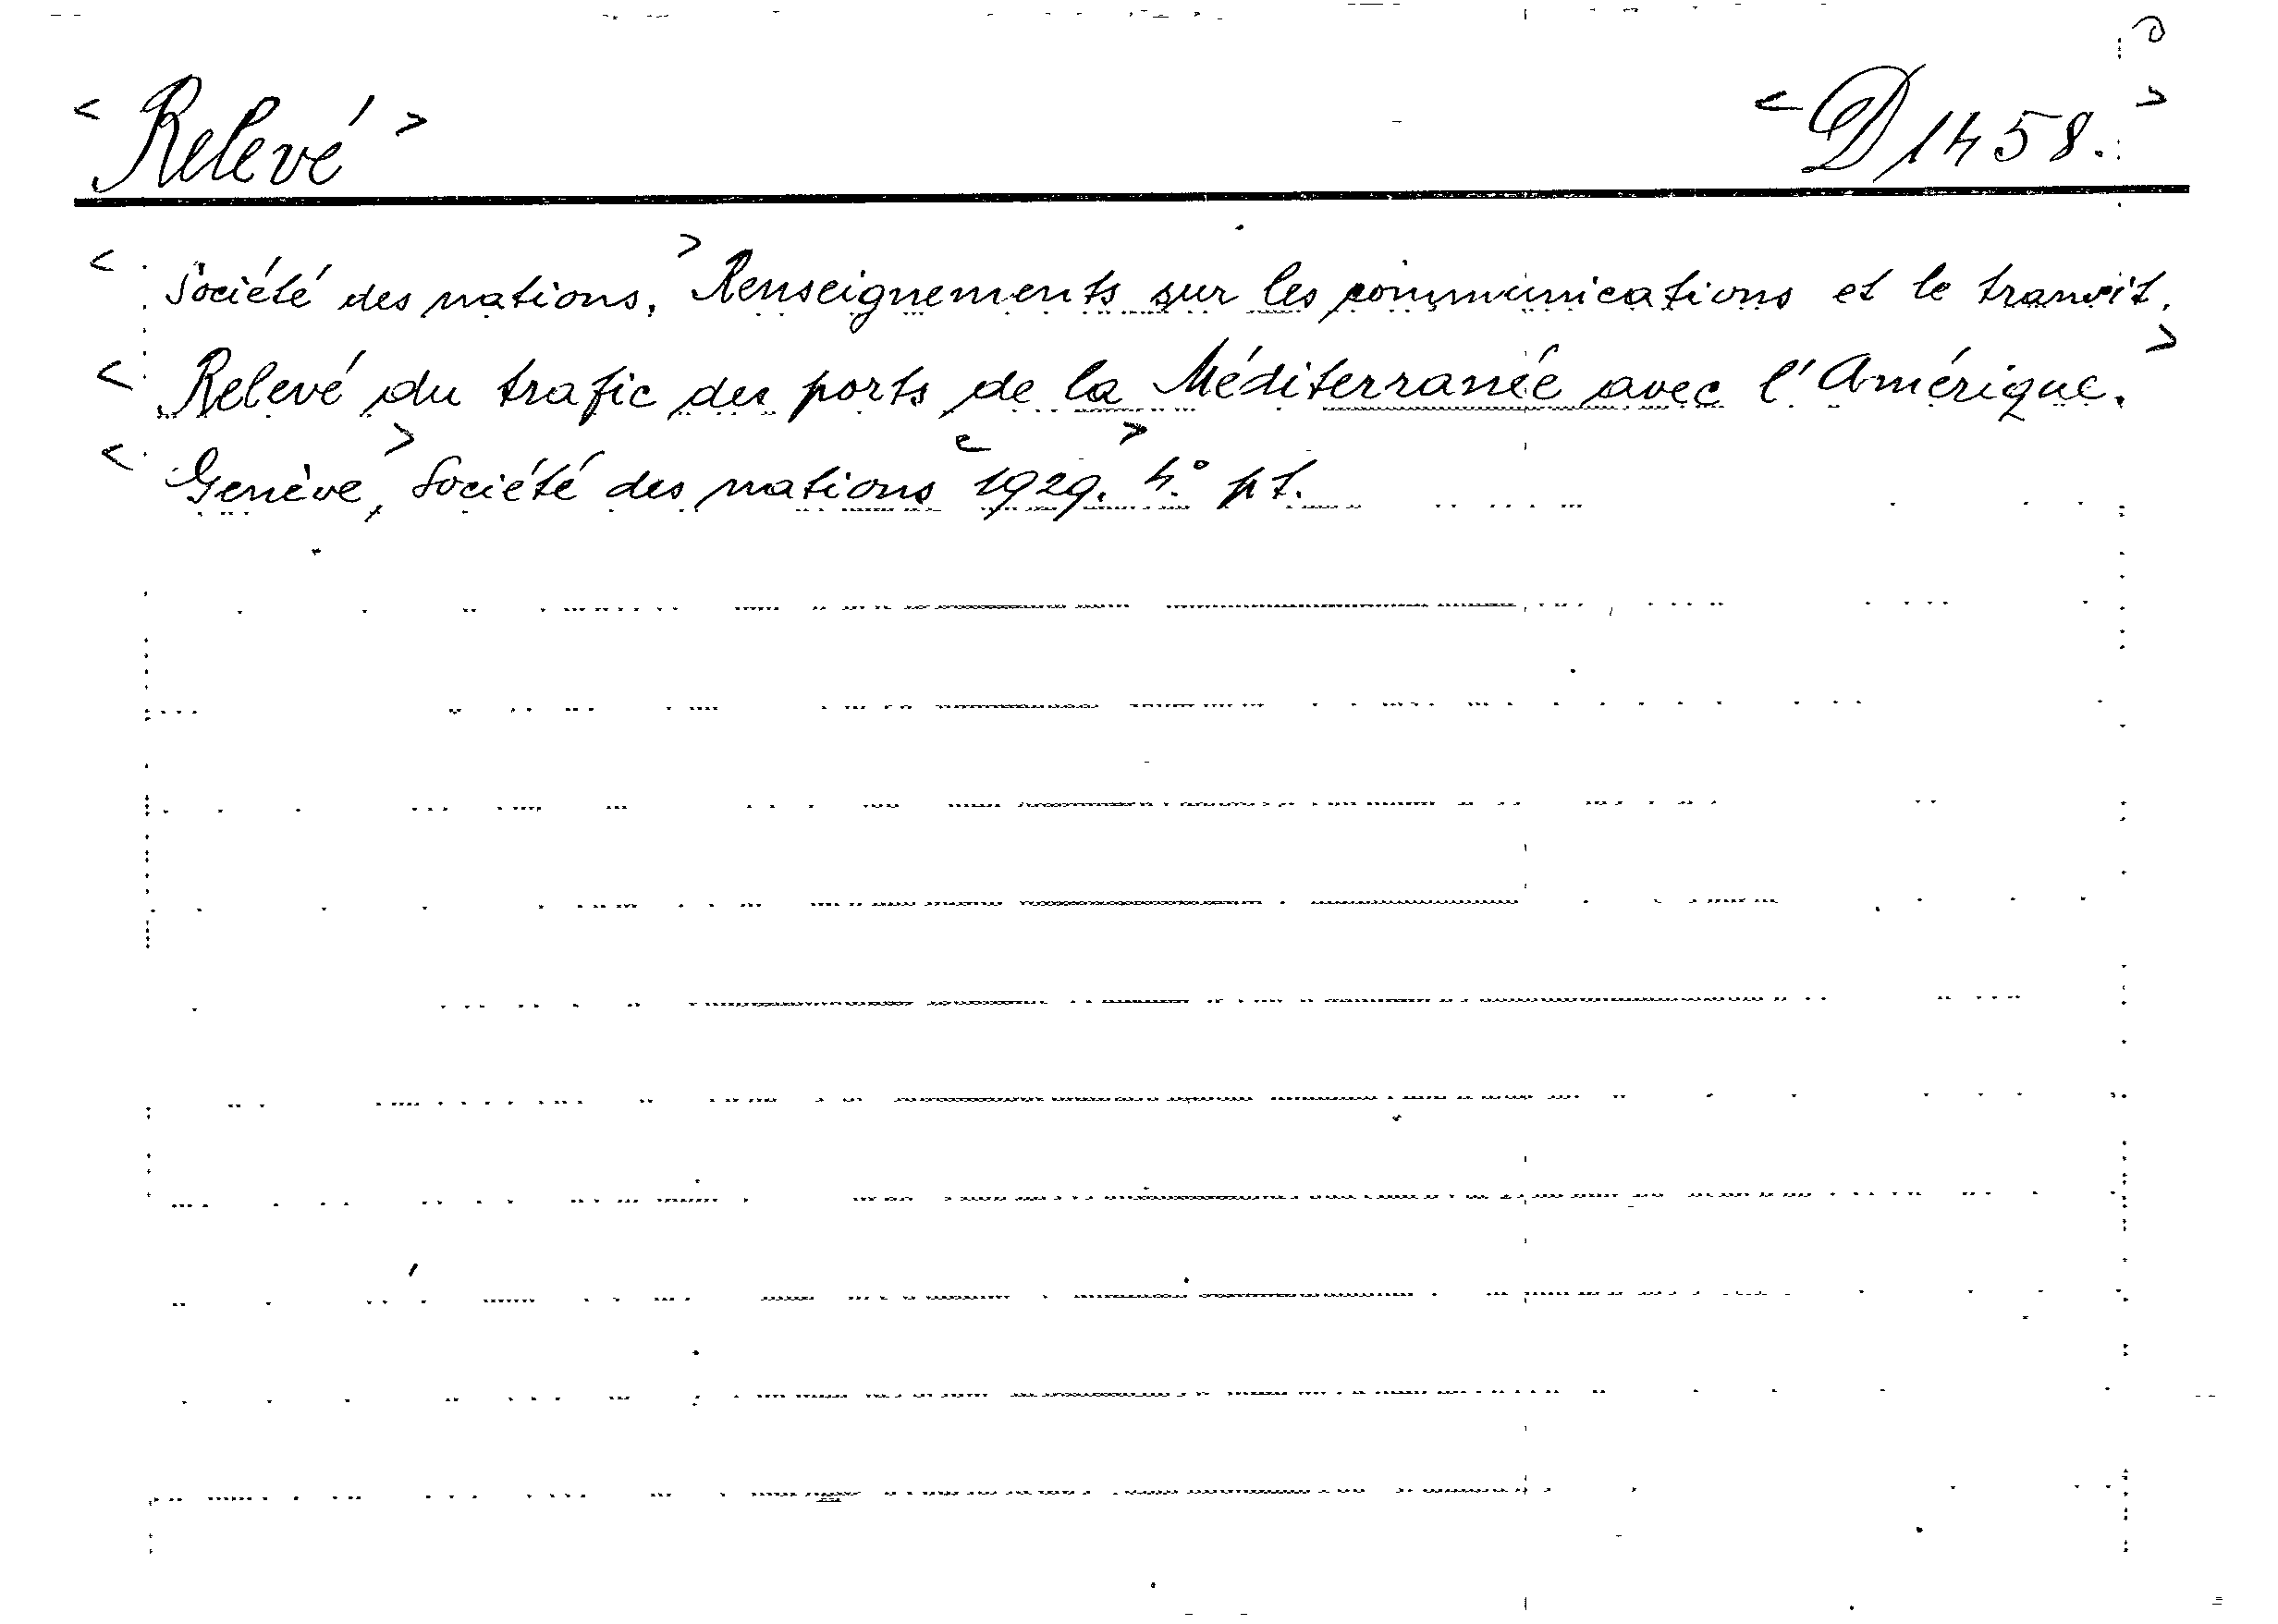 < Relevé > < D 1458. >
< Société des nations. > Renseignements sur les communications et le transit.
< Relevé du trafic des ports de la Méditerranée avec l'Amérique. >
< Genève, > Société des nations < 1929. > 4.° pt.